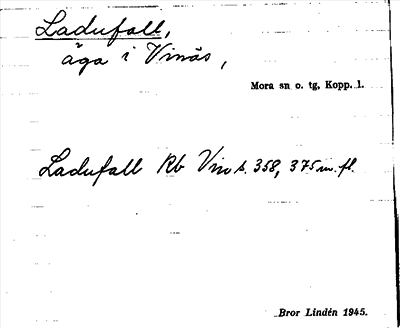 Ladufall,
äga i Vinäs,
Mora sn o. tg, Kopp. l.
Ladufall Rb Vin s. 358, 375 m. fl.
Bror Lindén 1945.